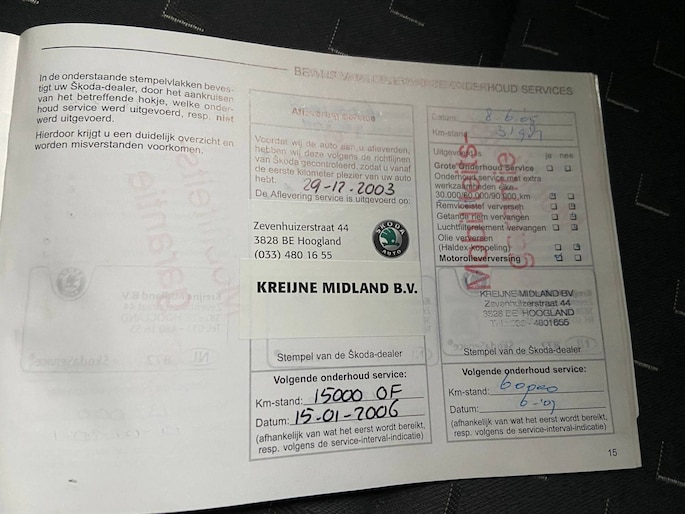 BEWIJS VAN UITGEVOERDE ONDERHOUD SERVICES
In de onderstaande stempelvlakken beves-
tigt uw Škoda-dealer, door het aankruisen
van het betreffende hokje, welke onder-
houd service werd uitgevoerd, resp. niet
werd uitgevoerd.
Hierdoor krijgt u een duidelijk overzicht en
worden misverstanden voorkomen.
Aflevering Service
Voordat wij de auto aan u afleverden,
hebben wij deze volgens de richtlijnen
van Škoda gecontroleerd, zodat u vanaf
de eerste kilometer plezier van uw auto
hebt.
29-12.2003
De Aflevering service is uitgevoerd op:
Zevenhuizerstraat 44
3828 BE Hoogland
(033) 480 16 55
ŠKODA
AUTO
KREIJNE MIDLAND B.V.
Stempel van de Škoda-dealer
Volgende onderhoud service:
Km-stand: 15000 OF
Datum: 15-01-2006
(afhankelijk van wat het eerst wordt bereikt,
resp. volgens de service-interval-indicatie)
Datum:
Km-stand:
Uitgevoerd is ja nee
Grote Onderhoud Service
Onderhoud service met extra
werkzaamheden elke
30.000/60.000/90.000 km
Remvloeistof verversen
Getande riem vervangen
Luchtfilterelement vervangen
Olie verversen
(Haldex-koppeling)
Motorolieverversing
KREIJNE MIDLAND BV
Zevenhuizerstraat 44
3828 BE HOOGLAND
4801655
Stempel van de Škoda-dealer
Volgende onderhoud service:
Km-stand: 60000
Datum:
(afhankelijk van wat het eerst wordt bereikt,
resp. volgens de service-interval-indicatie)
15